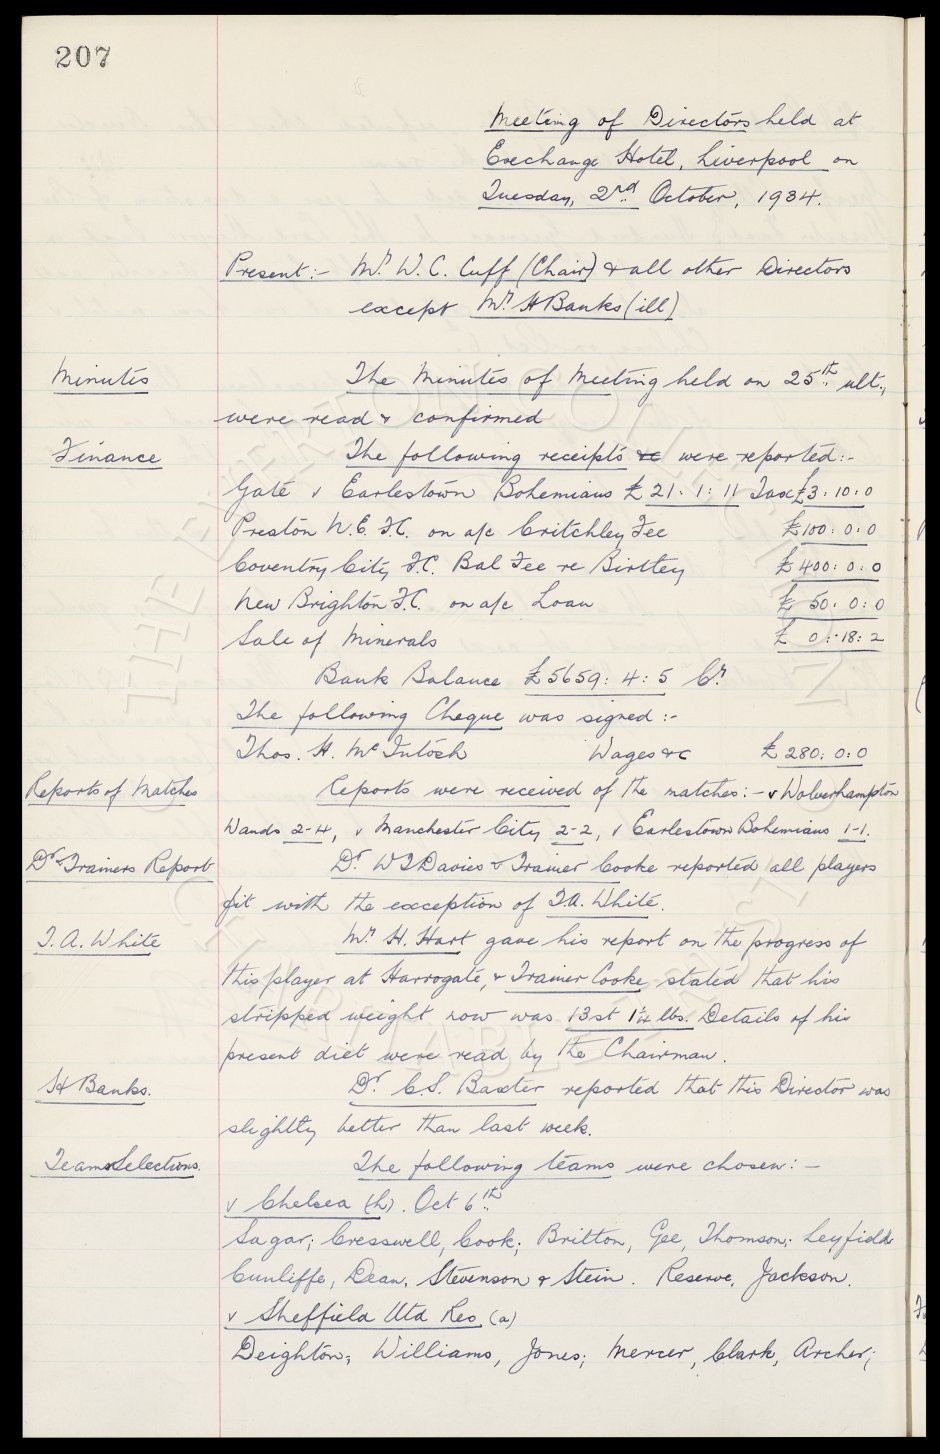 207
Meeting of Directors held at
Exchange Hotel, Liverpool on
Tuesday, 2nd October, 1934.
Present:- Mr. W. C. Cuff (Chair) & all other Directors
except Mr. H Banks (ill)
Minutes The Minutes of Meeting held on 25th ult.,
were read & confirmed
Finance The following receipts &c were reported:-
Gate v Earlestown Bohemians £21:1:11 Tax £3:10:0
Preston N.E. F.C. on a/c Critchley Fee £100:0:0
Coventry City F.C. Bal Fee re Birtley £400:0:0
New Brighton F.C. on a/c Loan £ 50:0:0
Sale of Minerals £ 0:18:2
Bank Balance £5659:4:5 Cr.
The following Cheque was signed:-
Thos. H. McIntosh Wages &c £280:0:0
Reports of Matches Reports were received of the matches:- v Wolverhampton
Wands 2-4, v Manchester City 2-2, v Earlestown Bohemians 1-1.
Dr & Trainers Report Dr. W T Davies & Trainer Cooke reported all players
fit with the exception of T.A. White.
T. A. White Mr. H. Hart gave his report on the progress of
this player at Harrogate, & Trainer Cooke stated that his
stripped weight now was 13st 1¼ lbs. Details of his
present diet were read by the Chairman.
H Banks. Dr. C. S. Baxter reported that this Director was
slightly better than last week.
Team Selections. The following teams were chosen:-
v Chelsea (h). Oct 6th.
Sagar; Cresswell, Cook; Britton, Gee, Thomson; Leyfield
Cunliffe, Dean, Stevenson & Stein. Reserve, Jackson.
v Sheffield Utd Res (a)
Deighton; Williams, Jones; Mercer, Clark, Archer;
THE EVERTON COLLECTION
CHARITABLE TRUST